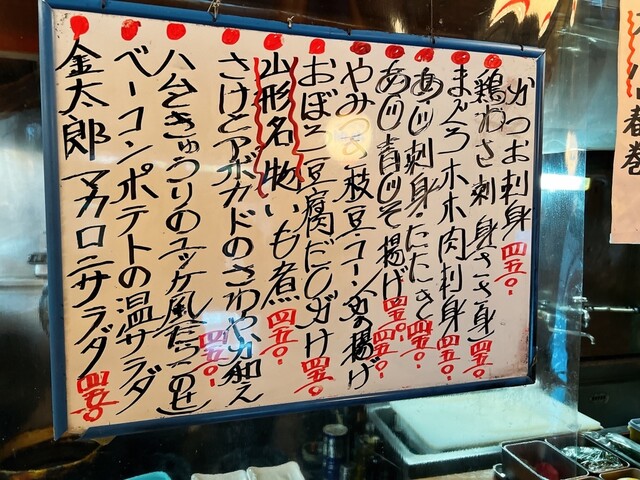 かつお刺身 四五〇.
鶏わさ刺身ささ身 四五〇.
まぐろホホ肉刺身 四五〇.
あじ刺身・たたき 四五〇.
あじ青じそ揚げ 四五〇.
やみつき枝豆コーンかき揚げ 四五〇.
おぼろ豆腐だしがけ 四五〇
山形名物いも煮 四五〇.
さけとアボカドのさわやか和え
ハムときゅうりのユッケ風たらこのせ 四五〇.
ベーコンポテトの温サラダ
金太郎マカロニサラダ 四五〇
春巻